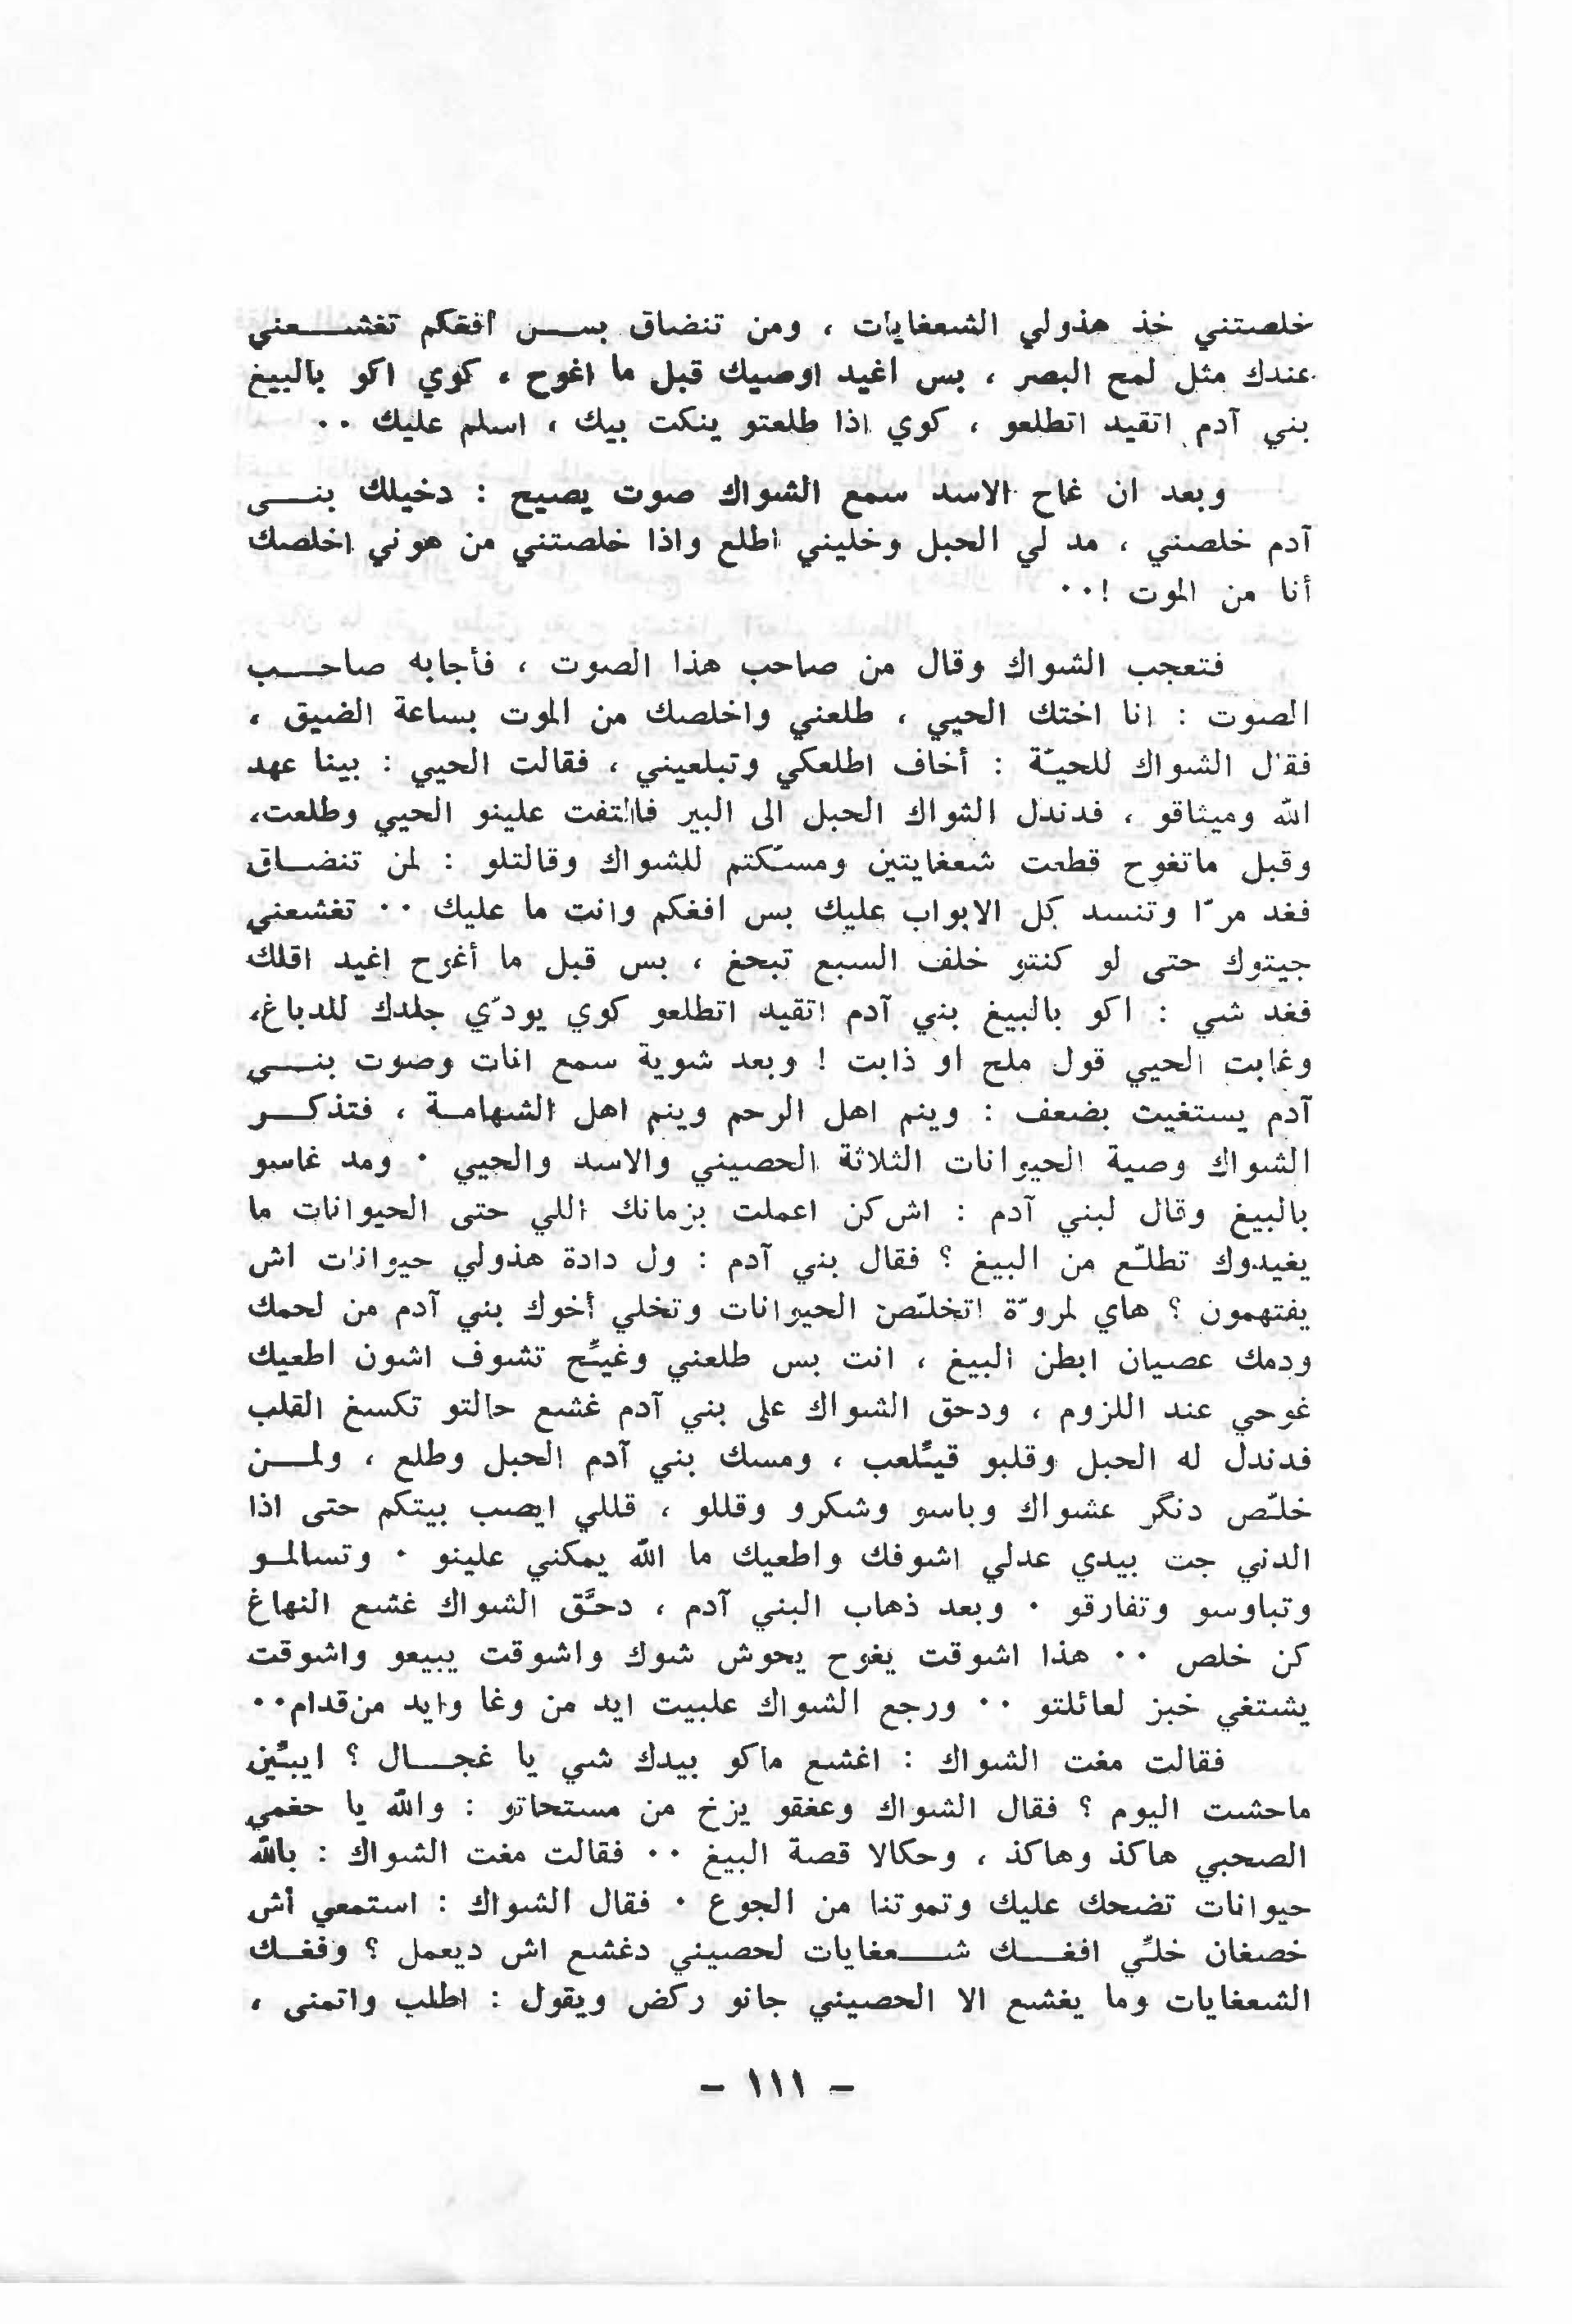 خلصتني خذ هذولي الشعغايات ، ومن تنضاق بس افغكم تغشعني
عندك مثل لمح البصر ، بس اغيد اوصيك قبل ما اغوح ، كوي اكو بالبيغ
بني آدم اتقيد اتطلعو ، كوي اذا طلعتو ينكت بيك ، اسلم عليك ۰۰
وبعد ان غاح الاسد سمع الشواك صوت يصيح : دخيلك بنى
آدم خلصني ، مد لي الحبل وخليني اطلع واذا خلصتني من هوني اخلصك
أنا من الموت !۰۰
فتعجب الشواك وقال من صاحب هذا الصوت ، فأجابه صاحب
الصوت : انا اختك الحيي ، طلعني واخلصك من الموت بساعة الضيق ،
فقال الشواك للحيّة : أخاف اطلعكي وتبلعيني ، فقالت الحيي : بينا عهد
الله وميثاقو ، فدندل الشواك الحبل الى البير فاالتفت علينو الحيي وطلعت،
وقبل ماتغوح قطعت شعغايتين ومسّكتم للشواك وقالتلو : لمن تنضاق
فغد مرّا وتنسد كل الابواب عليك بس افغكم وانت ما عليك ۰۰ تغشعني
جيتوك حتى لو كنتو خلف السبع تبحغ ، بس قبل ما أغوح اغيد اقلك
فغد شي : اكو بالبيغ بني آدم اتقيد اتطلعو كوي يودّي جلدك للدباغ،
وغابت الحيي قول ملح او ذابت ! وبعد شوية سمع انات وصوت بني
آدم يستغيث بضعف : وينم اهل الرحم وينم اهل الشهامة ، فتذكر
الشواك وصية الحيوانات الثلاثة الحصيني والاسد والحيي ۰ ومد غاسو
بالبيغ وقال لبني آدم : اش كن اعملت بزمانك اللي حتى الحيوانات ما
يغيدوك تطلّع من البيغ ؟ فقال بني آدم : ول دادة هذولي حيوانات اش
يفتهمون ؟ هاي لمروّة اتخلّص الحيوانات وتخلي أخوك بني آدم من لحمك
ودمك عصيان ابطن البيغ ، انت بس طلعني وغيّح تشوف اشون اطعيك
غوحي عند اللزوم ، ودحق الشواك على بني آدم غشع حالتو تكسغ القلب
فدندل له الحبل وقلبو قيّلعب ، ومسك بني آدم الحبل وطلع ، ولمن
خلّص دنگر عشواك وباسو وشكرو وقللو ، قللي ايصب بيتكم حتى اذا
الدني جت بيدي عدلي اشوفك واطعيك ما الله يمكني علينو ۰ وتسالمو
وتباوسو وتفارقو ۰ وبعد ذهاب البني آدم ، دحّق الشواك غشع النهاغ
كن خلص ۰۰ هذا اشوقت يغوح يحوش شوك واشوقت يبيعو واشوقت
يشتغي خبز لعائلتو ۰۰ ورجع الشواك علبيت ايد من وغا وايد من قدام۰۰
فقالت مغت الشواك : اغشع ماكو بيدك شي يا غجال ؟ ايبيّن
ماحشت اليوم ؟ فقال الشواك وعغقو يزخ من مستحاتو : والله يا حغمي
الصحبي هاكذ وهاكذ ، وحكالا قصة البيغ ۰۰ فقالت مغت الشواك : بالله
حيوانات تضحك عليك وتموتنا من الجوع ۰ فقال الشواك : استمعي أش
خصغان خلّي افغك شعغايات لحصيني دغشع اش ديعمل ؟ وفغك
الشعغايات وما يغشع الا الحصيني جانو ركض ويقول : اطلب واتمنى ،
– ١١١ –